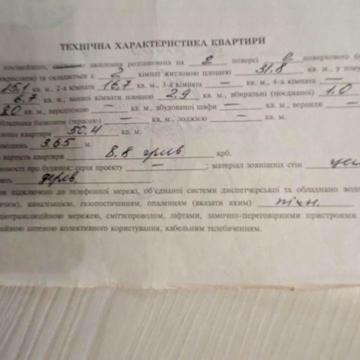 ТЕХНІЧНА ХАРАКТЕРИСТИКА КВАРТИРИ
розташована на 2 поверсі 6 поверхового
складається з 2 кімнат житловою площею 31.8 кв. м., у
15.1 кв. м., 2-а кімната 16.7 кв. м., 3-я кімната — кв. м., 4-а кімната —
6.7 кв. м., ванної кімнати площею 2.9 кв. м., вбиральні 1.0
3.0 кв. м., кв. м., вбудованої шафи — кв. м., веранди
балконом (терасою) — кв. м., лоджією — кв. м.
квартири 50.4 кв. м.
365 м.
вартість квартири 8,8 крб.
серія проекту — ; матеріал зовнішніх стін
дерев
підключено до телефонної мережі, об'єднаної системи диспетчерської та обладнано
каналізацією, газопостачанням, опаленням (вказати яким) пічн.
мережею, сміттєпроводом, ліфтами, замочно-переговорними пристроями
антеною колективного користування, кабельним телебаченням.